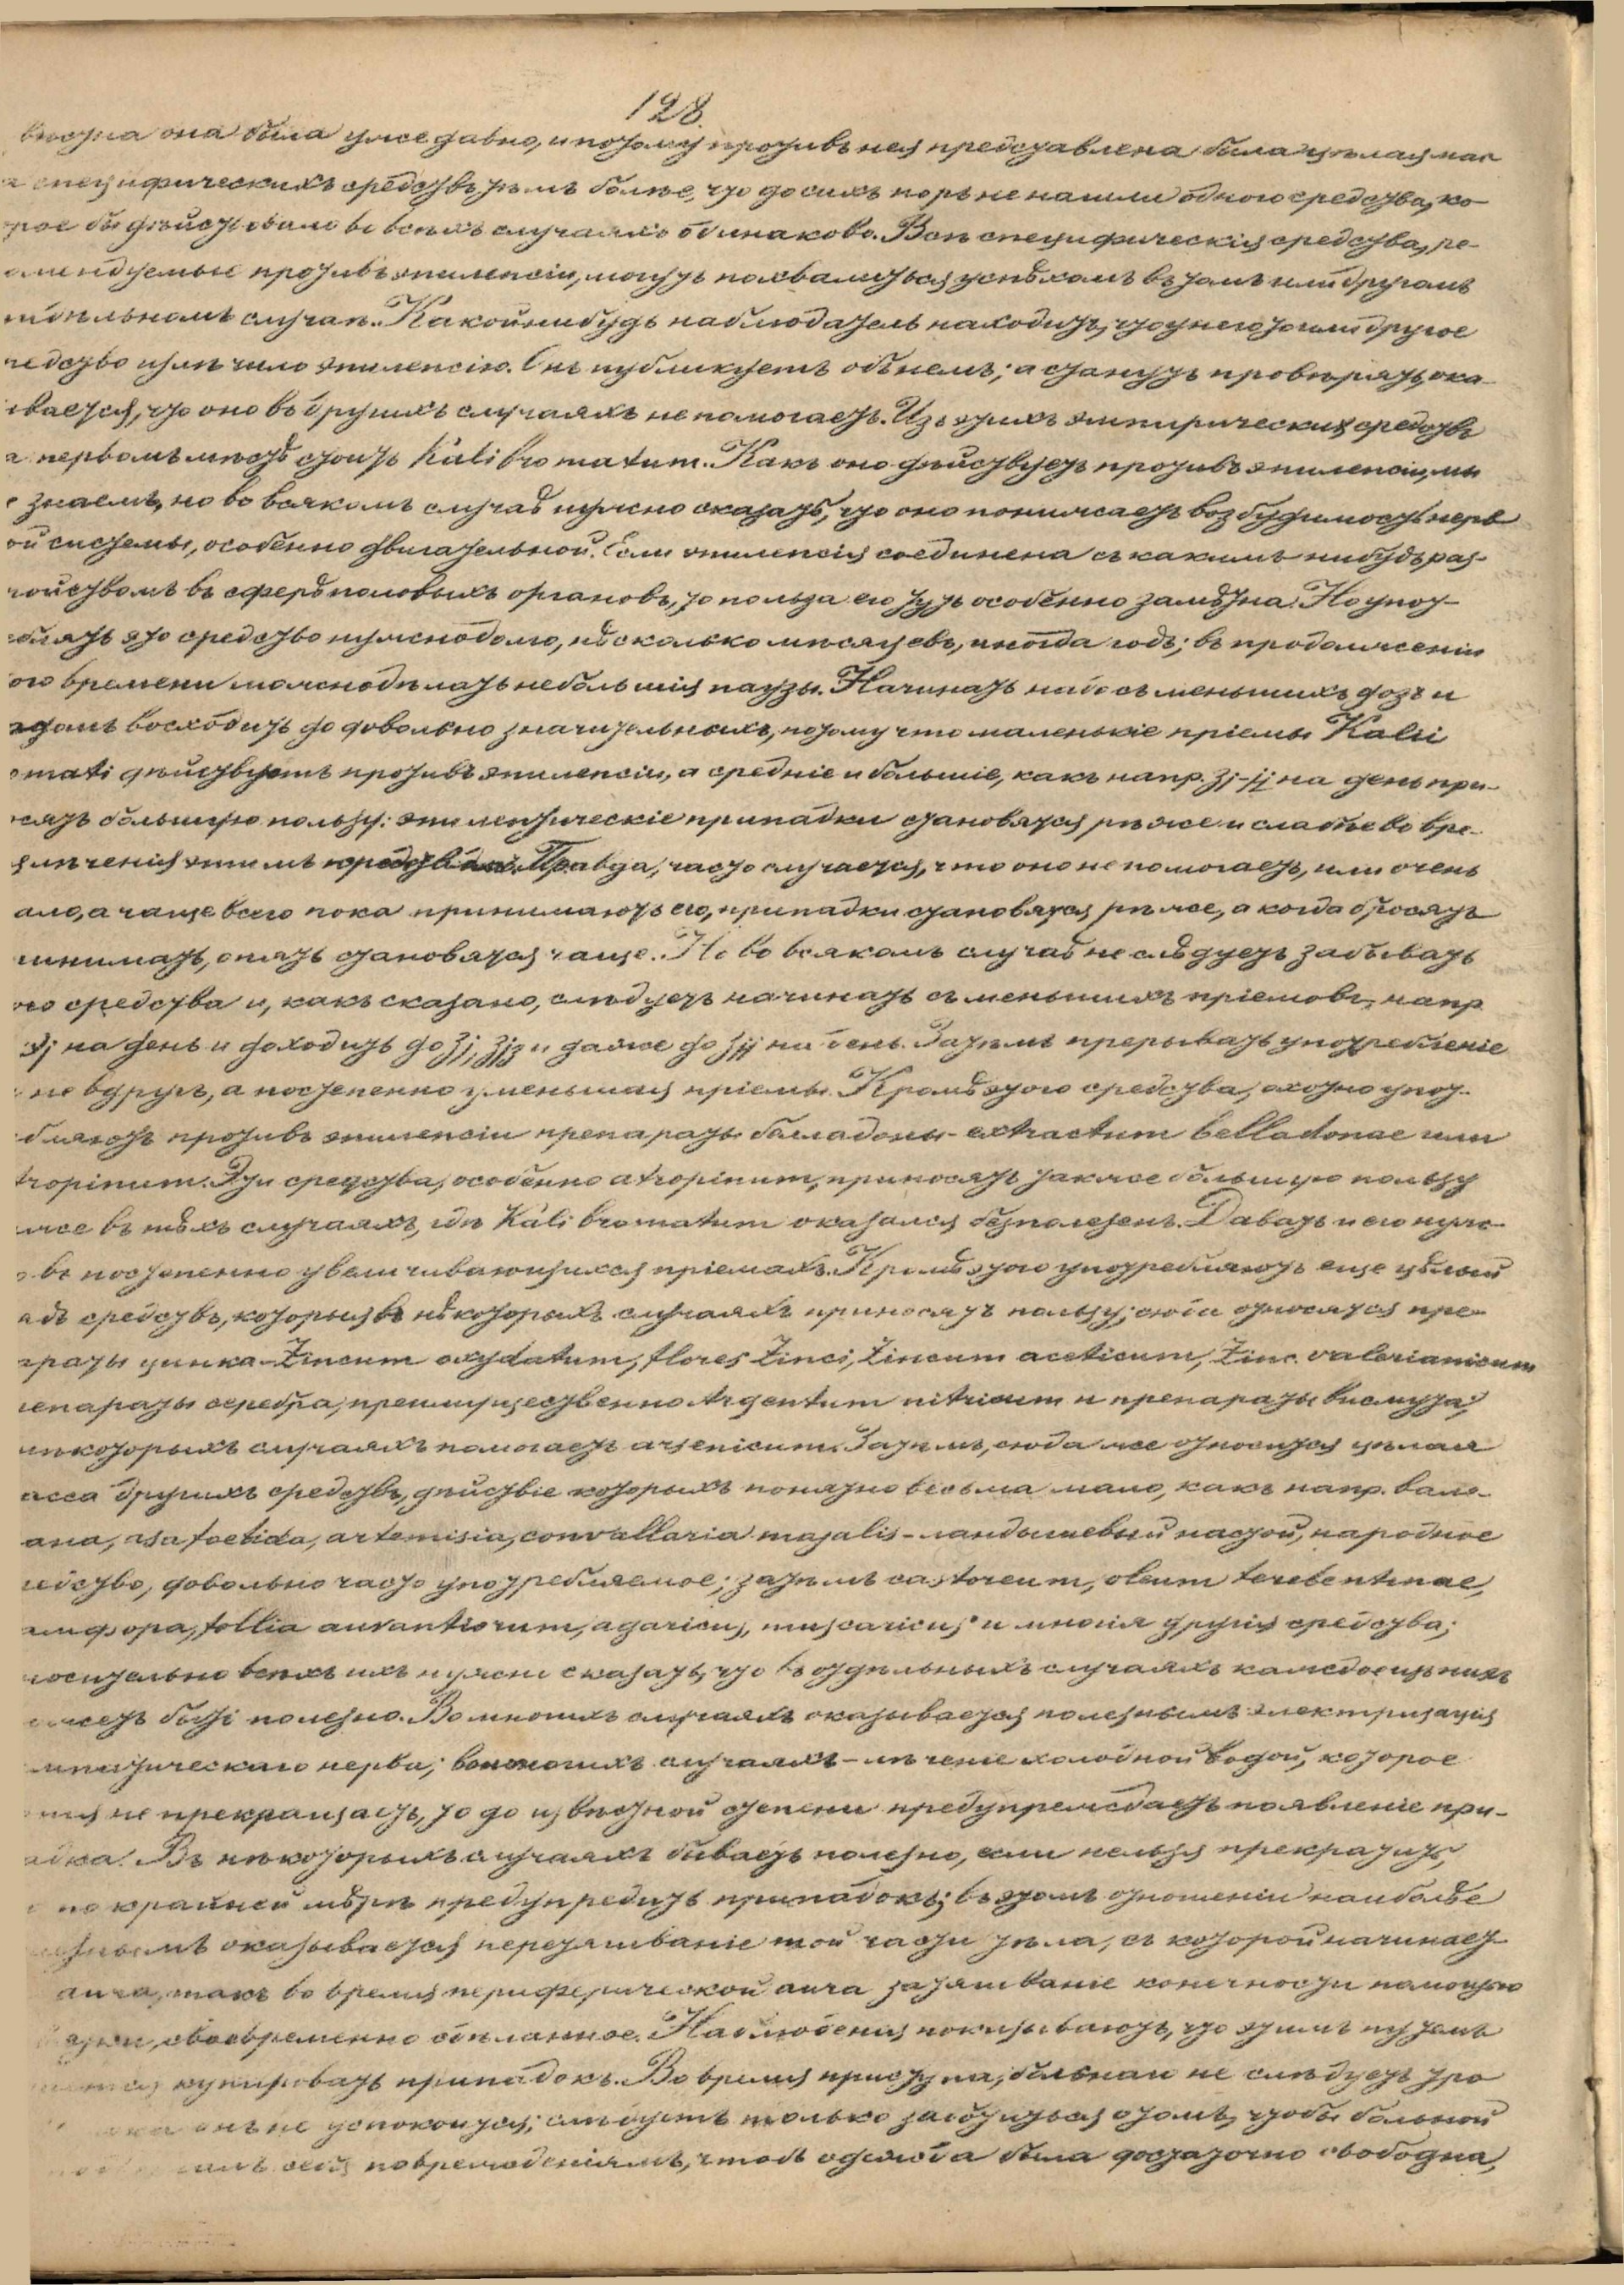 128.
вѣстна она была уже давно, и потому противъ нея представлена была цѣлая мас
а специфическихъ средствъ тѣмъ болѣе, что до сихъ поръ не нашли одного средства, ко
рое бы дѣйствовало во всѣхъ случаяхъ одинаково. Всѣ специфическія средства, ре-
омендуемые противъ эпилепсіи, могутъ похвалиться успѣхомъ въ томъ или другомъ
тдѣльномъ случаѣ. Какой нибудь наблюдатель находитъ, что у него то или другое
редство излѣчило эпилепсію. Онъ публикуетъ объ немъ; а станутъ провѣрять, ока-
ывается, что оно въ другихъ случаяхъ не помогаетъ. Изъ этихъ эмпирическихъ средствъ
а первомъ мѣстѣ стоитъ Kali bromatum. Какъ оно дѣйствуетъ противъ эпилепсіи, мы
е знаемъ, но во всякомъ случаѣ нужно сказать, что оно понижаетъ возбудимость нерв
ой системы, особенно двигательной. Если эпилепсія соединена съ какимъ нибудь раз-
тройствомъ въ сферѣ половыхъ органовъ, то польза его тутъ особенно замѣтна. Но упот-
еблять это средство нужно долго, нѣсколько мѣсяцевъ, иногда годъ; въ продолженіи
ого времени можно дѣлать небольшія паузы. Начинать надо съ меньшихъ дозъ и
атомъ восходить до довольно значительныхъ, потому что маленькіе пріемы Kalii
omati дѣйствуютъ противъ эпилепсіи, а средніе и большіе, какъ напр. ʒj-jj на день при-
осятъ большую пользу: эпилептическіе припадки становятся рѣже и слабѣе во вре-
я лѣченія этимъ средствомъ. Правда, часто случается, что оно не помогаетъ, или очень
ало, а чаще всего пока принимаютъ его, припадки становятся рѣже, а когда бросятъ
ринимать, опять становятся чаще. Но во всякомъ случаѣ не слѣдуетъ забывать
ого средства и, какъ сказано, слѣдуетъ начинать съ меньшихъ пріемовъ, напр
℈j на день и доходить до ʒj, ʒjß и даже до ʒjj на день. Затѣмъ прерывать употребленіе
не вдругъ, а постепенно уменьшая пріемы. Кромѣ этого средства, охотно упот-
бляютъ противъ эпилепсіи препараты балладоны - extractum belladonae или
tropinum. Эти средства, особенно atropinum, приносятъ также большую пользу
же въ тѣхъ случаяхъ, гдѣ Kali bromatum оказался безполезенъ. Давать и его нуж-
о въ постепенно увеличивающихся пріемахъ. Кромѣ этого употребляютъ еще цѣлый
ядъ средствъ, которыя въ нѣкоторыхъ случаяхъ приносятъ пользу; сюда относятся пре-
араты цинка - Zincum oxydatum, flores Zinci, Zincum aceticum, Zinc. valerianicum
репараты серебра, преимущественно Argentum nitricum и препараты висмута;
нѣкоторыхъ случаяхъ помогаетъ arsenicum. Затѣмъ, сюда же относится цѣлая
асса другихъ средствъ, дѣйствіе которыхъ понятно весьма мало, какъ напр. вале-
ана, asa foetida, artemisia, convallaria majalis - ландышевый настой, народное
редство, довольно часто употребляемое; затѣмъ castoreum, oleum terebentinae,
амфора, follia aurantiorum, agaricus, muscaricus и многія другія средства;
носительно всѣхъ ихъ нужно сказать, что въ отдѣльныхъ случаяхъ каждое изъ нихъ
ожетъ быть полезно. Во многихъ случаяхъ оказывается полезнымъ электризація
мпатическаго нерва; во многихъ случаяхъ - лѣченіе холодной водой, которое
не прекращаетъ, то до извѣстной степени предупреждаетъ появленіе при-
адка. Въ нѣкоторыхъ случаяхъ бываетъ полезно, если нельзя прекратить,
по крайней мѣрѣ предупредить припадокъ; въ этомъ отношеніи наиболѣе
лезнымъ оказывается перетягиваніе той части тѣла, съ которой начинает
аура, такъ во время периферической aura затягиваніе конечности помощью
своевременно сдѣланное. Наблюденія показываютъ, что этимъ путемъ
купировать припадокъ. Во время приступа, больнаго не слѣдуетъ тро
онъ не успокоится; слѣдуетъ только заботиться о томъ, чтобы больной
себя поврежденіямъ, чтобъ одежда была достаточно свободна,